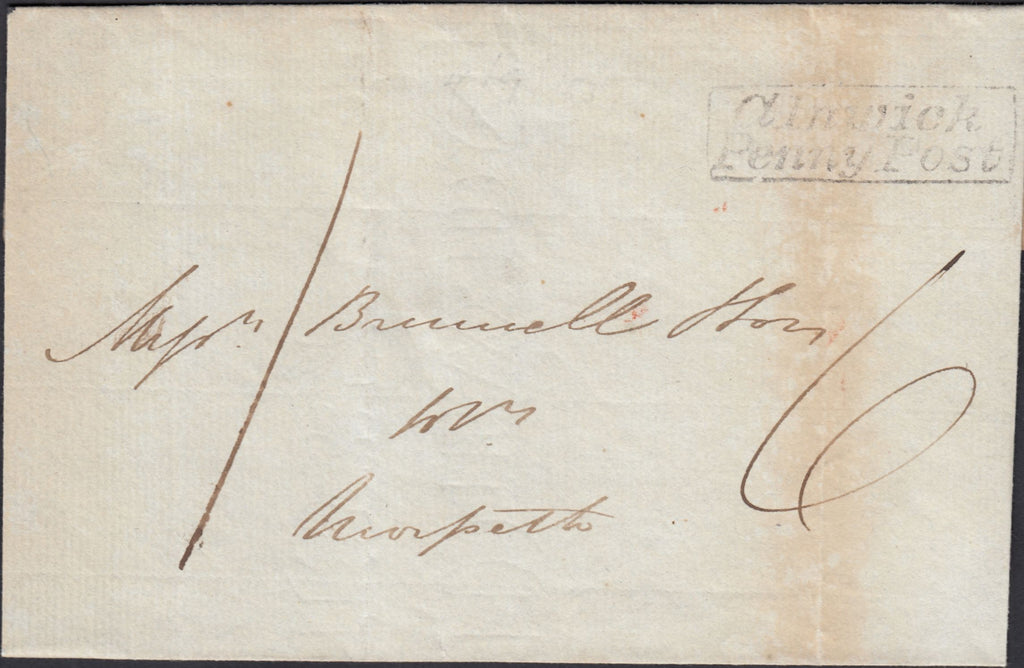 Alnwick
Penny Post
1
Messrs Brumell
6
Morpeth